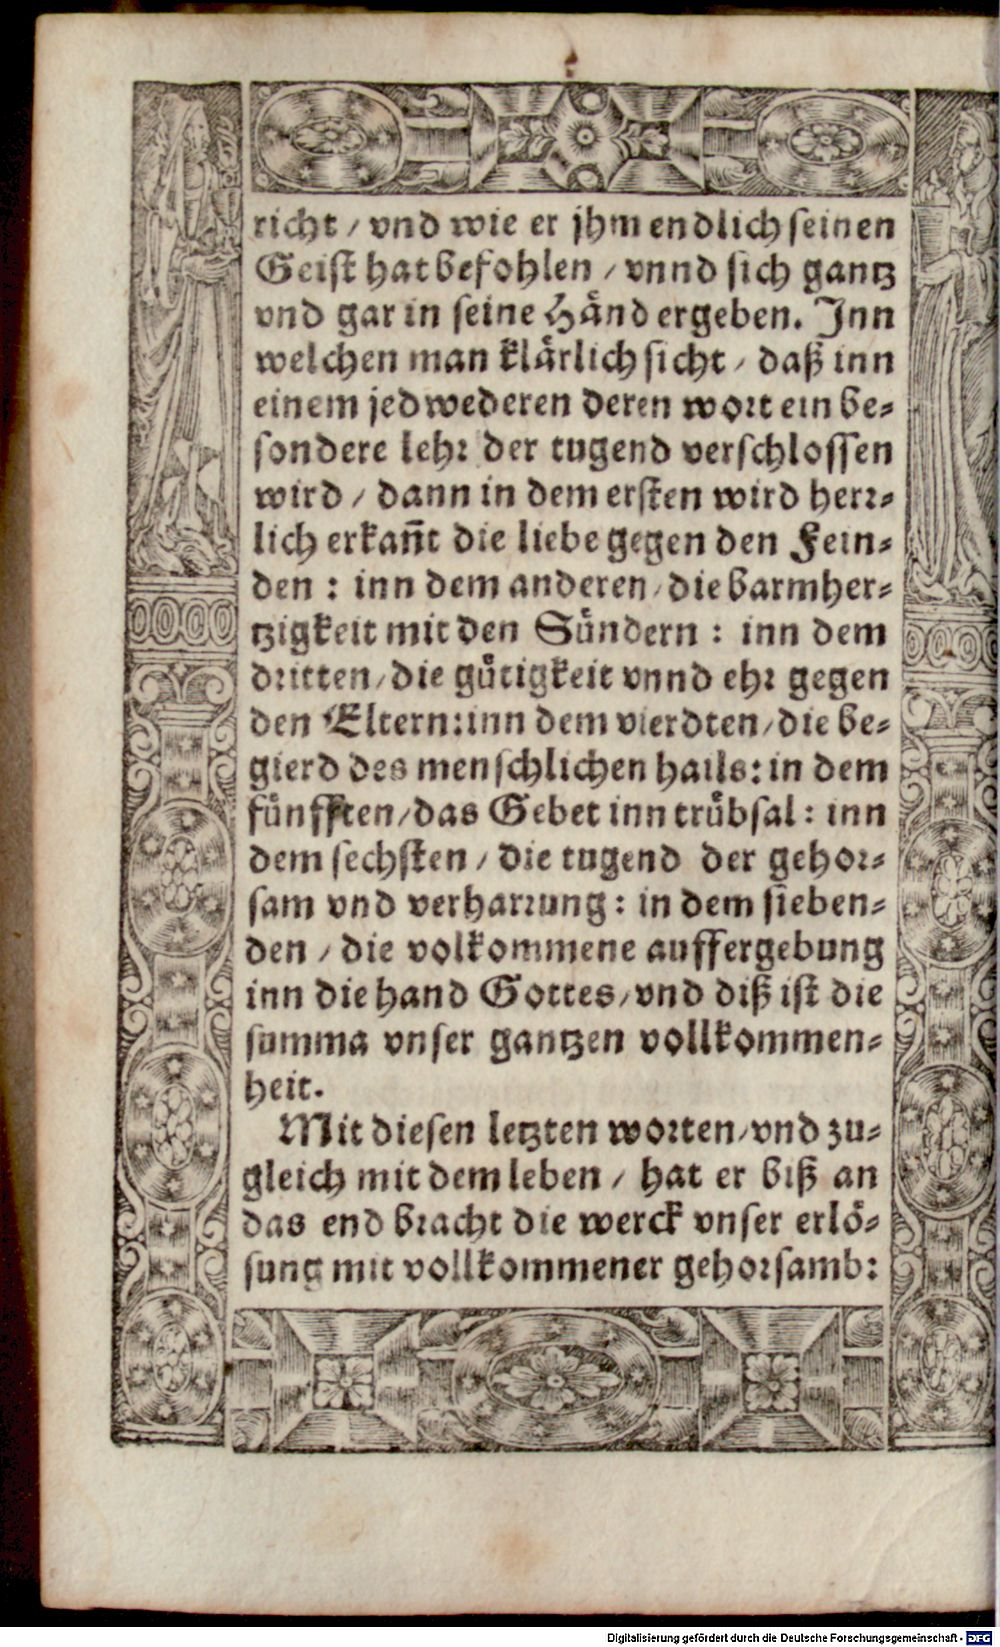 richt / vnd wie er jhm endlich seinen
Geist hat befohlen / vnnd sich gantz
vnd gar in seine Hånd ergeben. Jnn
welchen man klårlich sicht / daß inn
einem jedwederen deren wort ein be⸗
sondere lehr der tugend verschlossen
wird / dann in dem ersten wird herr⸗
lich erkañt die liebe gegen den Fein⸗
den : inn dem anderen / die barmher⸗
tzigkeit mit den Sündern : inn dem
dritten / die gůtigkeit vnnd ehr gegen
den Eltern: inn dem vierdten / die be⸗
gierd des menschlichen hails: in dem
fünfften / das Gebet inn trůbsal : inn
dem sechsten / die tugend der gehor⸗
sam vnd verharrung : in dem sieben⸗
den / die volkommene auffergebung
inn die hand Gottes / vnd diß ist die
summa vnser gantzen vollkommen⸗
heit.
Mit diesen letzten worten / vnd zu⸗
gleich mit dem leben / hat er biß an
das end bracht die werck vnser erlö⸗
sung mit vollkommener gehorsamb:
Digitalisierung gefördert durch die Deutsche Forschungsgemeinschaft - DFG